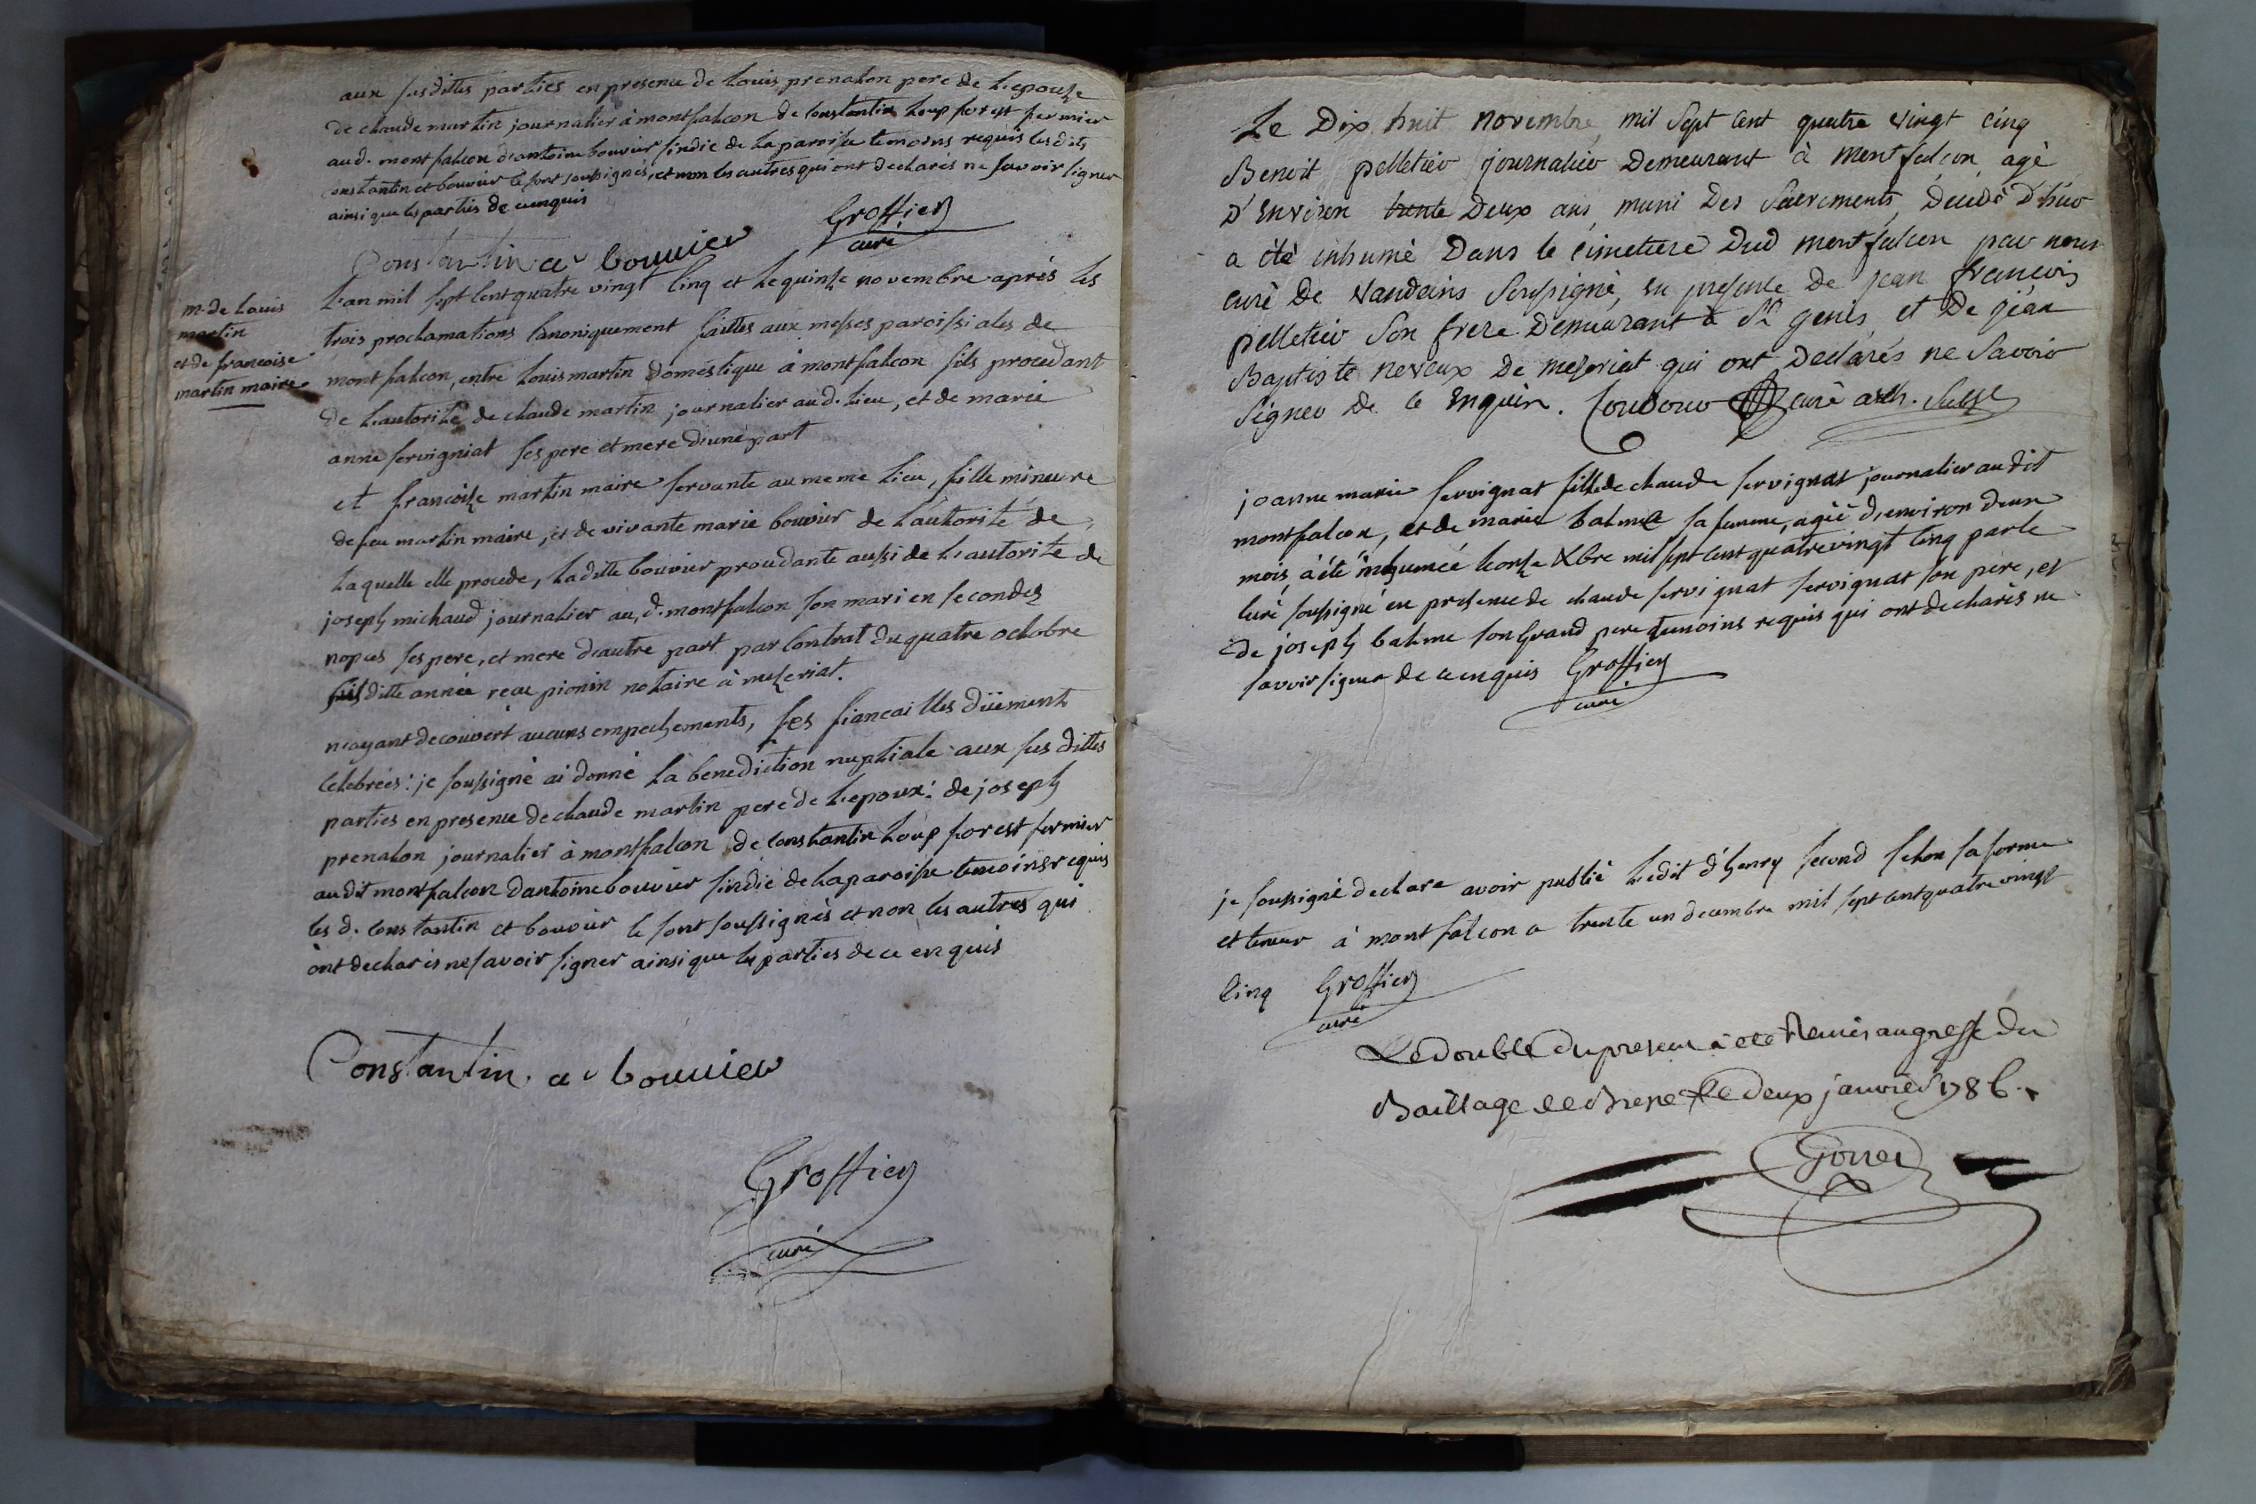 aux susdittes parties en presence de Louis prenalon pere de L'epouse
de claude martin journalier à montfalcon de constantin Loup forest fermier
aud. montfalcon d'antoine bouvier sindic de la paroisse temoins requis lesdits
constantin et bouvier se sont soussignés, et non les autres qui ont declarés ne savoir signer
ainsi que les parties de ce enquis
Groffier
curé
Constantin a bouuier
m. de Louis
martin
et de francoise
martin maire
L'an mil sept cent quatre vingt cinq et le quinse novembre après les
trois proclamations canoniquement faittes aux messes paroissiales de
montfalcon, entre Louis martin domestique à montfalcon fils procedant
de L'autorité de claude martin journalier aud. Lieu, et de marie
anne servigniat ses pere et mere d'une part
et francoise martin maire servante au meme Lieu, fille mineure
de feu martin maire, et de vivante marie bouvier de L'autorité de
Laquelle elle procede, Laditte bouvier procedante aussi de L'autorité de
joseph michaud journalier au d. montfalcon son mari en secondes
nopces ses pere, et mere d'autre part par contrat du quatre octobre
susditte année reçu pionin notaire à meseriat.
n'ayant decouvert aucuns empechements, ses fiancailles düement
celebrées: je soussigné ai donné La benediction nuptiale aux susdittes
parties en presence de claude martin pere de L'epoux: de joseph
prenalon journalier à montfalcon de constantin Loup forest fermier
audit montfalcon d'antoine bouvier sindic de La paroisse temoins requis
les d. constantin et bouvier se sont soussignés et non les autres qui
ont declarés ne savoir signer ainsi que les parties de ce enquis
Constantin. a bouuier
Groffier
curé
Le Dix huit novembre mil sept cent quatre vingt cinq
Benoit pelletier journalier Demeurant à montfalcon agé
D'Environ trente Deux ans muni Des Sacrements, Décédé D'hier
a été inhumé Dans le cimetiere Dud montfalcon par nous
curé De vandeins Soussigné, en presence de jean francois
pelletier Son frere Demeurant à St genis et De jéan
Baptiste neveux De meseriat qui ont Declarés ne Savoir
Signer de ce Enquis. curé
joanne marie servignat fille de claude servignat journalier audit
montfalcon, et de marie balme sa femme, agée d'environ deux
mois, à été inhumée Le onse Xbre mil sept cent quatre vingt cinq par le
curé soussigné en presence de claude servignat servignat son pere, et
de joseph balme son Grand pere temoins requis qui ont declarés ne
savoir signer de ce enquis Groffier
curé
je soussigné declare avoir publié L'edit d'henry second selon sa forme
et teneur à montfalcon a trente un decembre mil sept cent quatre vingt
cinq Groffier
curé
Le double du present à eté Remis au greffe du
Baillage de Bresse le deux janvier 1786.